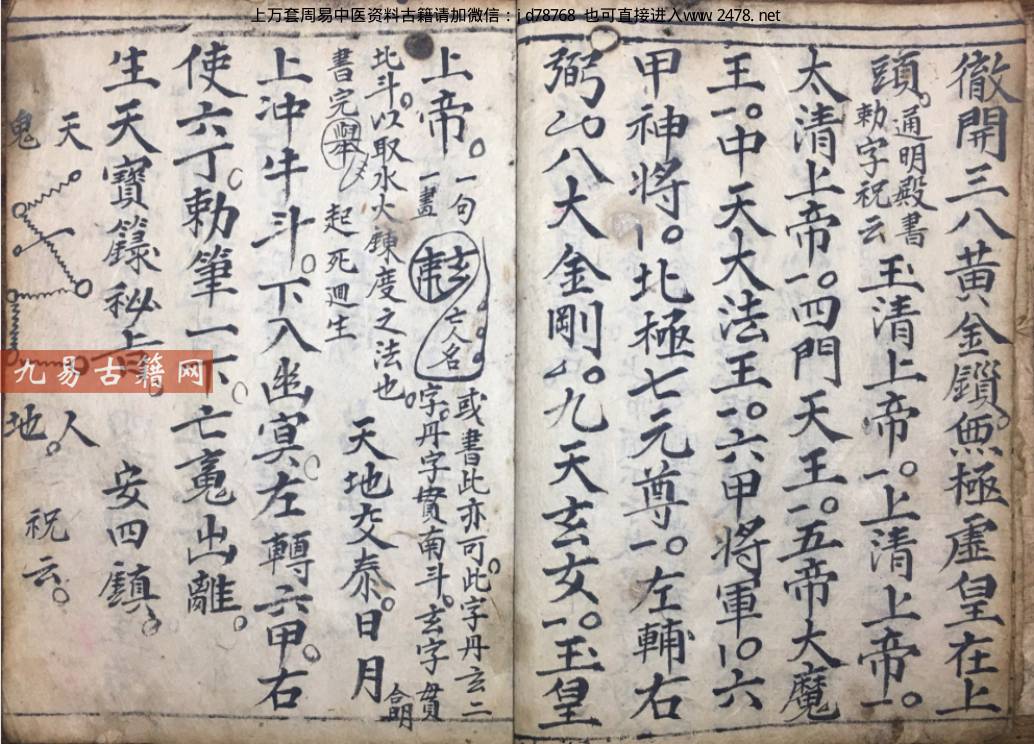 上万套周易中医资料古籍请加微信：jd78768 也可直接进入www.2478.net
徹開三八黃金鎖無極虛皇在上
頭。通明殿書
勅字祝云
玉清上帝。一上清上帝。一
太清上帝。一四門天王。一五帝大魔
王。一中天大法王。一六甲將軍。一六
甲神將。一北極七元尊。一左輔右
弼。八大金剛。九天玄女。一玉皇
上帝。
一句
一畫
亡人名
或書此亦可。此字丹玄二
字。丹字貫南斗。玄字貫
北斗。以取水火鍊度之法也。
書完
起死迴生
天地交泰。日月
合明
上冲牛斗。下入幽冥。左轉六甲。右
使六丁。勅筆一下。亡魂出離。
生天寶籙秘上。
安四鎮。
天
鬼
人
地。
祝云。
九易古籍网